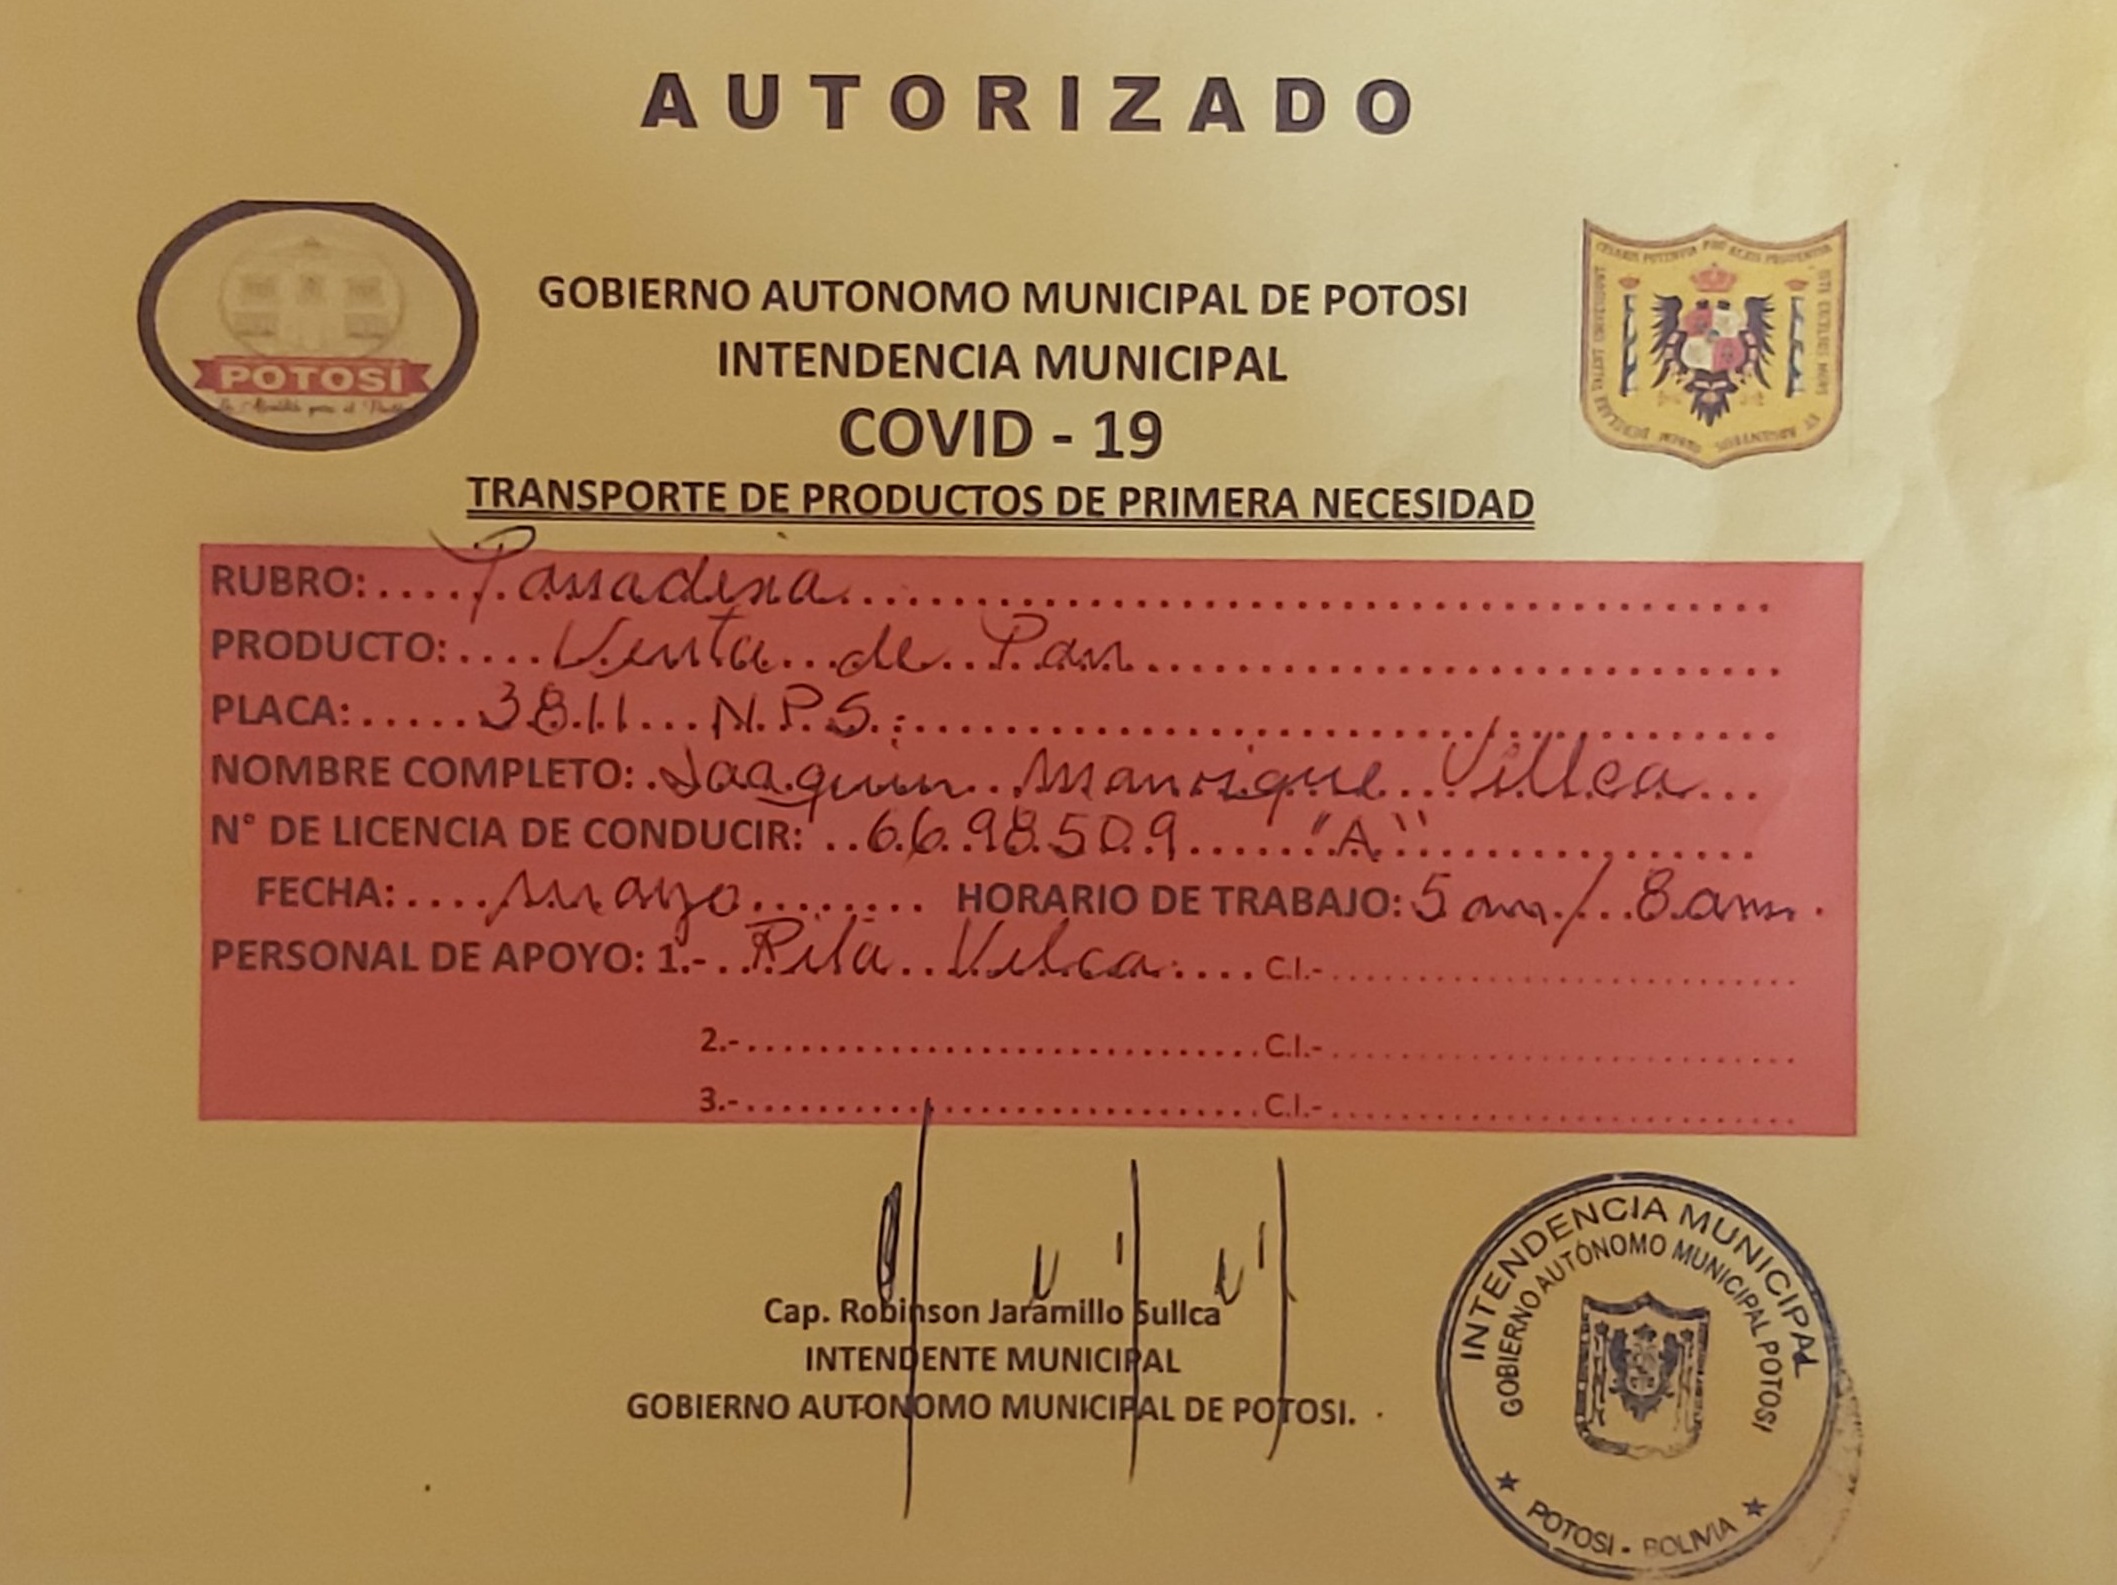 AUTORIZADO
POTOSÍ
GOBIERNO AUTONOMO MUNICIPAL DE POTOSI
INTENDENCIA MUNICIPAL
COVID - 19
TRANSPORTE DE PRODUCTOS DE PRIMERA NECESIDAD
RUBRO: Panaderia
PRODUCTO: Venta de Pan
PLACA: 3811 N.P.S.
NOMBRE COMPLETO: Joaquin Manrique Villca
N° DE LICENCIA DE CONDUCIR: 6698509 "A"
FECHA: Mayo HORARIO DE TRABAJO: 5 am / 8 am
PERSONAL DE APOYO: 1.- Rita Vilca C.I.-
2.- C.I.-
3.- C.I.-
Cap. Robinson Jaramillo Sullca
INTENDENTE MUNICIPAL
GOBIERNO AUTONOMO MUNICIPAL DE POTOSI.
INTENDENCIA MUNICIPAL
GOBIERNO AUTÓNOMO MUNICIPAL POTOSI
POTOSI - BOLIVIA